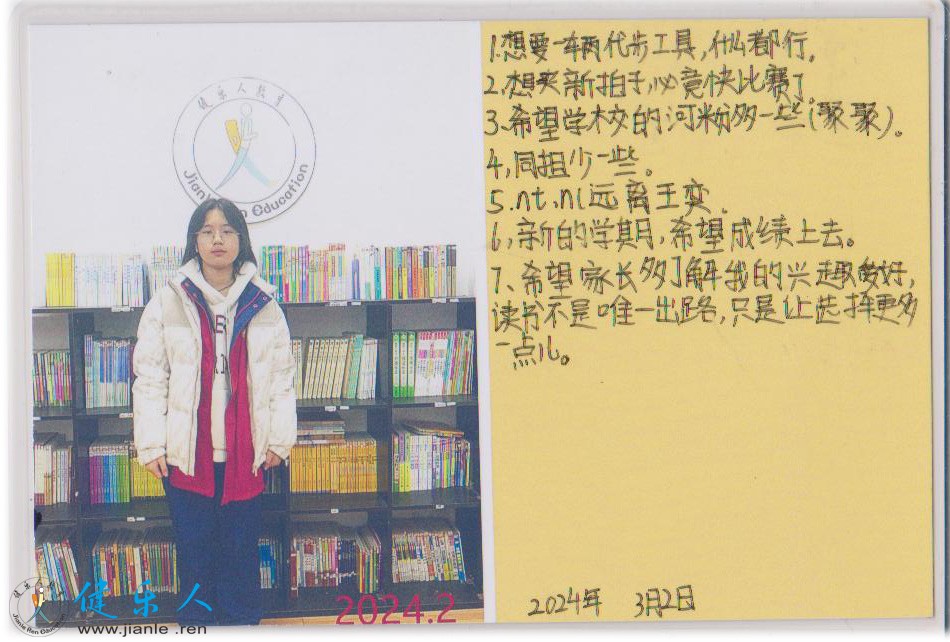 健乐人教育
Jianle Ren Education
1.想要一车两代步工具,什么都行。
2.想买新拍子,必竟快比赛了
3.希望学校的河粉多一些(聚聚)。
4,同担少一些。
5.nt.nl远离王变.
6,新的学期,希望成绩上去。
7、希望家长多了解我的兴趣爱好,
读书不是唯一出路,只是让选择更多
一点儿。
2024年 3月2日
2024.2
健乐人
www.jianle .ren